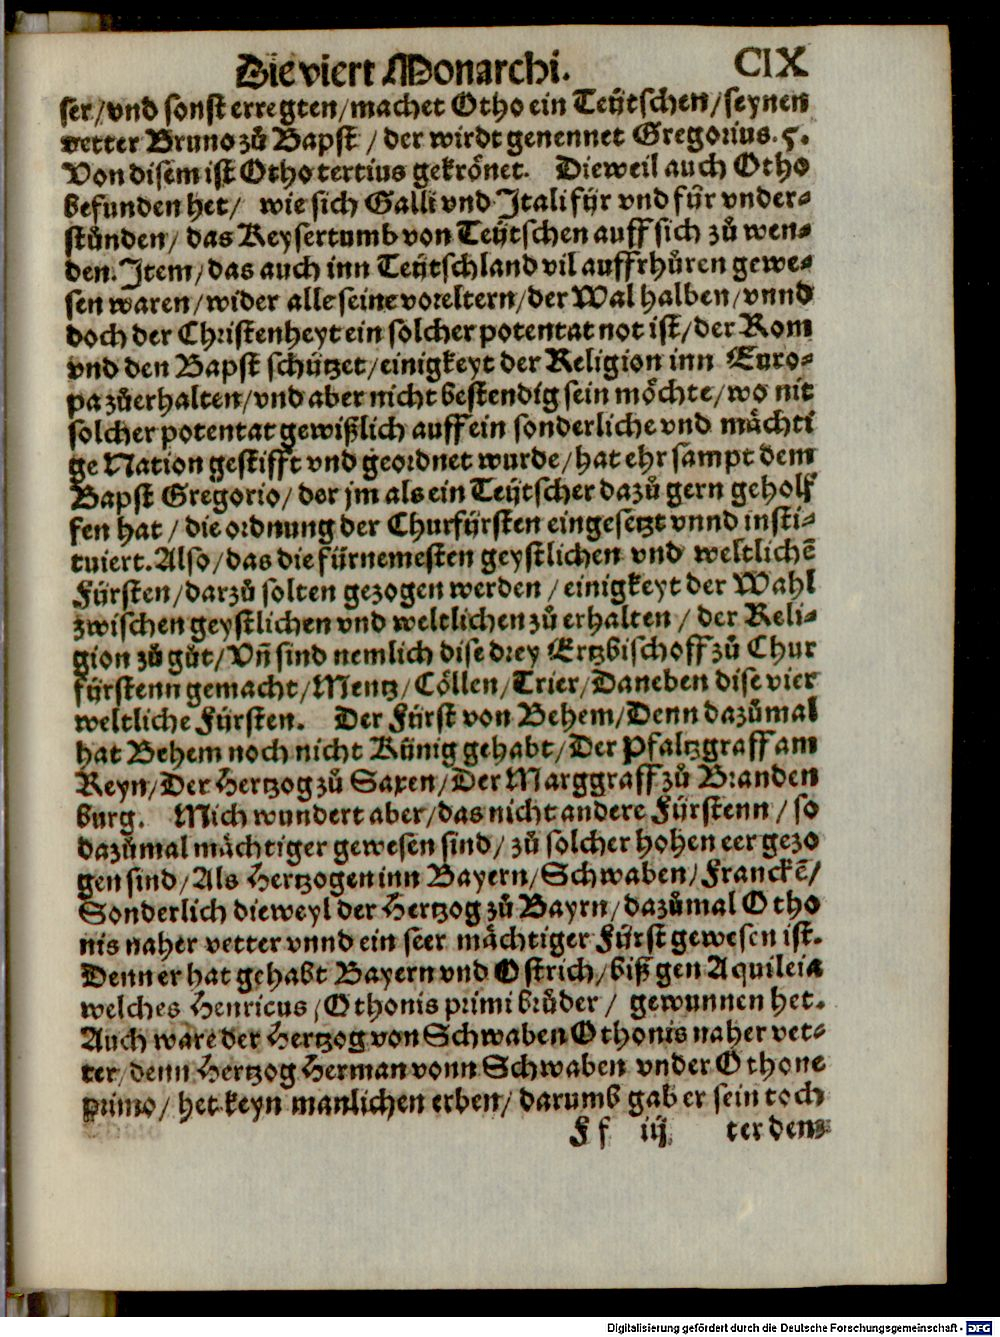 Die viert Monarchi. CIX
ser/vnd sonst erregten/machet Otho ein Teÿtschen/seynen
vetter Bruno zů Bapst / der wirdt genennet Gregorius. 5.
Von disem ist Otho tertius gekrönet. Dieweil auch Otho
befunden het/ wie sich Galli vnd Itali fÿr vnd fÿr vnder-
stůnden/ das Keysertumb von Teÿtschen auff sich zů wen-
den. Item/das auch inn Teÿtschland vil auffrhůren gewe-
sen waren/wider alle seine voreltern/der Wal halben/vnnd
doch der Christenheyt ein solcher potentat not ist/der Rom
vnd den Bapst schützet/einigkeyt der Religion inn Euro-
pa zůerhalten/vnd aber nicht bestendig sein möchte/wo nit
solcher potentat gewißlich auff ein sonderliche vnd mächti
ge Nation gestifft vnd geordnet wurde/hat ehr sampt dem
Bapst Gregorio/der jm als ein Teÿtscher dazů gern geholf
fen hat / die ordnung der Churfÿrsten eingesetzt vnnd insti-
tuiert. Also/das die fürnemesten geystlichen vnd weltlichē
Fürsten/darzů solten gezogen werden / einigkeyt der Wahl
zwischen geystlichen vnd weltlichen zů erhalten / der Reli-
gion zů gůt/Vñ sind nemlich dise drey Ertzbischoff zů Chur
fÿrstenn gemacht/Mentz/Cöllen/Trier/Daneben dise vier
weltliche Fürsten. Der Fÿrst von Behem/Denn dazůmal
hat Behem noch nicht Künig gehabt/Der Pfaltzgraff am
Reyn/Der Hertzog zů Saxen/Der Marggraff zů Branden
burg. Mich wundert aber/das nicht andere Fÿrstenn / so
dazůmal mächtiger gewesen sind/ zů solcher hohen eer gezo
gen sind/Als Hertzogen inn Bayern/Schwaben/Franckē/
Sonderlich dieweyl der Hertzog zů Bayrn/dazůmal Otho
nis naher vetter vnnd ein seer mächtiger Fürst gewesen ist.
Denn er hat gehabt Bayern vnd Ostrich/biß gen Aquileia
welches Henricus/Othonis primi brůder / gewunnen het.
Auch ware der Hertzog von Schwaben Othonis naher vet-
ter/denn Hertzog Herman vonn Schwaben vnder Othone
primo/ het keyn manlichen erben/darumb gab er sein toch
Ff iij ter dem
Digitalisierung gefördert durch die Deutsche Forschungsgemeinschaft - DFG